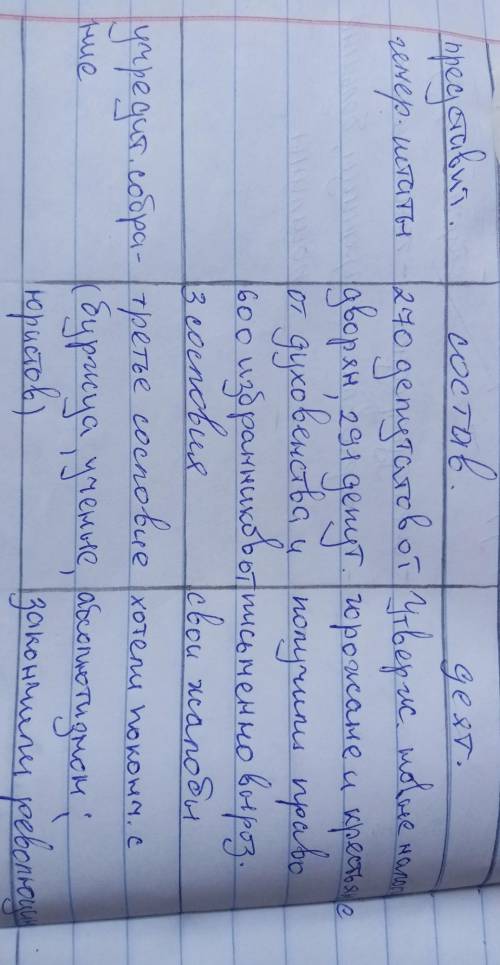 представит. состав. деят.
генер. штаты 270 депутатов от Утверж. новые налог
дворян, 291 депут. горожане и крестьяне
от духовенства и получили право
600 избранников от письменно выроз.
3 сословия свои жалобы
учредит. собра- третье сословие хотели поконч. с
ние (буржуа, ученые, абсолютизмом,
юристов) закончили революцию